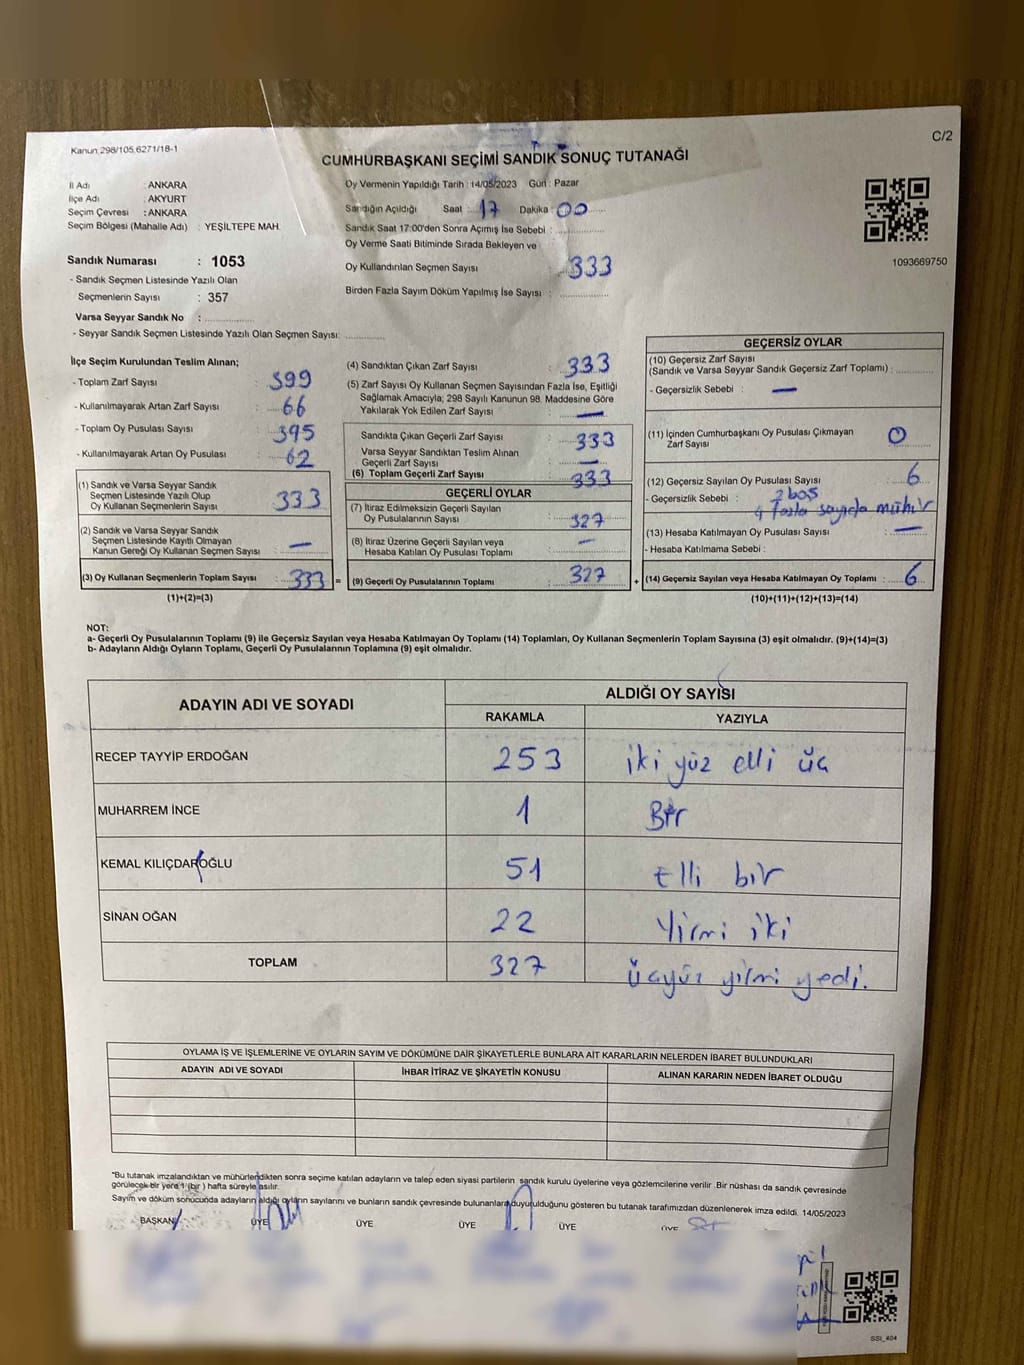 C/2
Kanun:298/105,6271/18-1
CUMHURBAŞKANI SEÇİMİ SANDIK SONUÇ TUTANAĞI
İl Adı : ANKARA
İlçe Adı : AKYURT
Seçim Çevresi : ANKARA
Seçim Bölgesi (Mahalle Adı) : YEŞİLTEPE MAH.
Sandık Numarası : 1053
- Sandık Seçmen Listesinde Yazılı Olan
Seçmenlerin Sayısı : 357
Varsa Seyyar Sandık No :
- Seyyar Sandık Seçmen Listesinde Yazılı Olan Seçmen Sayısı:
Oy Vermenin Yapıldığı Tarih : 14/05/2023 Gün : Pazar
Sandığın Açıldığı Saat : 17 Dakika : 00
Sandık Saat 17:00'den Sonra Açımış İse Sebebi :
Oy Verme Saati Bitiminde Sırada Bekleyen ve
Oy Kullandırılan Seçmen Sayısı : 333
Birden Fazla Sayım Döküm Yapılmış İse Sayısı :
1093669750
İlçe Seçim Kurulundan Teslim Alınan;
- Toplam Zarf Sayısı : 399
- Kullanılmayarak Artan Zarf Sayısı : 66
- Toplam Oy Pusulası Sayısı : 395
- Kullanılmayarak Artan Oy Pusulası : 62
(1) Sandık ve Varsa Seyyar Sandık
Seçmen Listesinde Yazılı Olup
Oy Kullanan Seçmenlerin Sayısı : 333
(2) Sandık ve Varsa Seyyar Sandık
Seçmen Listesinde Kayıtlı Olmayan
Kanun Gereği Oy Kullanan Seçmen Sayısı : —
(3) Oy Kullanan Seçmenlerin Toplam Sayısı : 333 =
(1)+(2)=(3)
(4) Sandıktan Çıkan Zarf Sayısı : 333
(5) Zarf Sayısı Oy Kullanan Seçmen Sayısından Fazla İse, Eşitliği
Sağlamak Amacıyla; 298 Sayılı Kanunun 98. Maddesine Göre
Yakılarak Yok Edilen Zarf Sayısı : —
Sandıkta Çıkan Geçerli Zarf Sayısı : 333
Varsa Seyyar Sandıktan Teslim Alınan
Geçerli Zarf Sayısı : —
(6) Toplam Geçerli Zarf Sayısı : 333
GEÇERLİ OYLAR
(7) İtiraz Edilmeksizin Geçerli Sayılan
Oy Pusulalarının Sayısı : 327
(8) İtiraz Üzerine Geçerli Sayılan veya
Hesaba Katılan Oy Pusulası Toplamı : —
(9) Geçerli Oy Pusulalarının Toplamı : 327 +
GEÇERSİZ OYLAR
(10) Geçersiz Zarf Sayısı
(Sandık ve Varsa Seyyar Sandık Geçersiz Zarf Toplamı) :
- Geçersizlik Sebebi : —
(11) İçinden Cumhurbaşkanı Oy Pusulası Çıkmayan
Zarf Sayısı : 0
(12) Geçersiz Sayılan Oy Pusulası Sayısı : 6
- Geçersizlik Sebebi : 2 boş
4 fazla sayıda mühür
(13) Hesaba Katılmayan Oy Pusulası Sayısı : —
- Hesaba Katılmama Sebebi :
(14) Geçersiz Sayılan veya Hesaba Katılmayan Oy Toplamı : 6
(10)+(11)+(12)+(13)=(14)
NOT:
a- Geçerli Oy Pusulalarının Toplamı (9) ile Geçersiz Sayılan veya Hesaba Katılmayan Oy Toplamı (14) Toplamları, Oy Kullanan Seçmenlerin Toplam Sayısına (3) eşit olmalıdır. (9)+(14)=(3)
b- Adayların Aldığı Oyların Toplamı, Geçerli Oy Pusulalarının Toplamına (9) eşit olmalıdır.
ADAYIN ADI VE SOYADI ALDIĞI OY SAYISI
RAKAMLA YAZIYLA
RECEP TAYYİP ERDOĞAN 253 iki yüz elli üç
MUHARREM İNCE 1 Bir
KEMAL KILIÇDAROĞLU 51 Elli bir
SİNAN OĞAN 22 Yirmi iki
TOPLAM 327 üçyüz yirmi yedi.
OYLAMA İŞ VE İŞLEMLERİNE VE OYLARIN SAYIM VE DÖKÜMÜNE DAİR ŞİKAYETLERLE BUNLARA AİT KARARLARIN NELERDEN İBARET BULUNDUKLARI
ADAYIN ADI VE SOYADI İHBAR İTİRAZ VE ŞİKAYETİN KONUSU ALINAN KARARIN NEDEN İBARET OLDUĞU
*Bu tutanak imzalandıktan ve mühürlendikten sonra seçime katılan adayların ve talep eden siyasi partilerin sandık kurulu üyelerine veya gözlemcilerine verilir .Bir nüshası da sandık çevresinde
görülecek bir yere 1 (bir ) hafta süreyle asılır.
Sayım ve döküm sonucunda adayların aldığı oyların sayılarını ve bunların sandık çevresinde bulunanlara duyurulduğunu gösteren bu tutanak tarafımızdan düzenlenerek imza edildi. 14/05/2023
BAŞKAN ÜYE ÜYE ÜYE ÜYE ÜYE
SSI_404